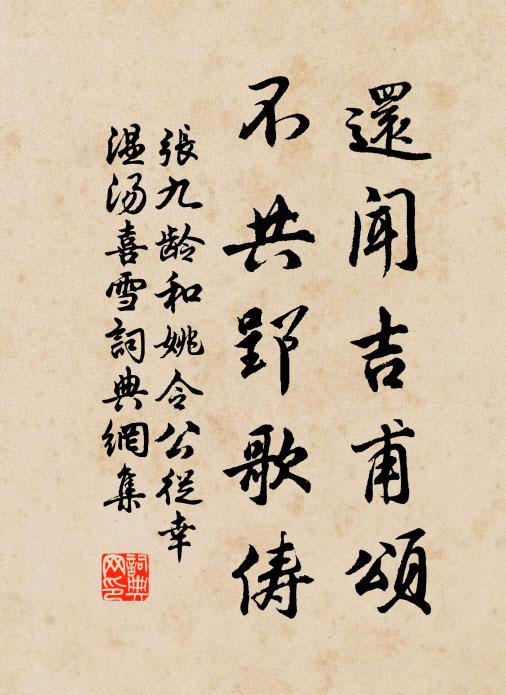 還聞吉甫頌
不共郢歌儔
張九龄和姚令公從幸
温汤喜雪詞典網集
詞典
网印